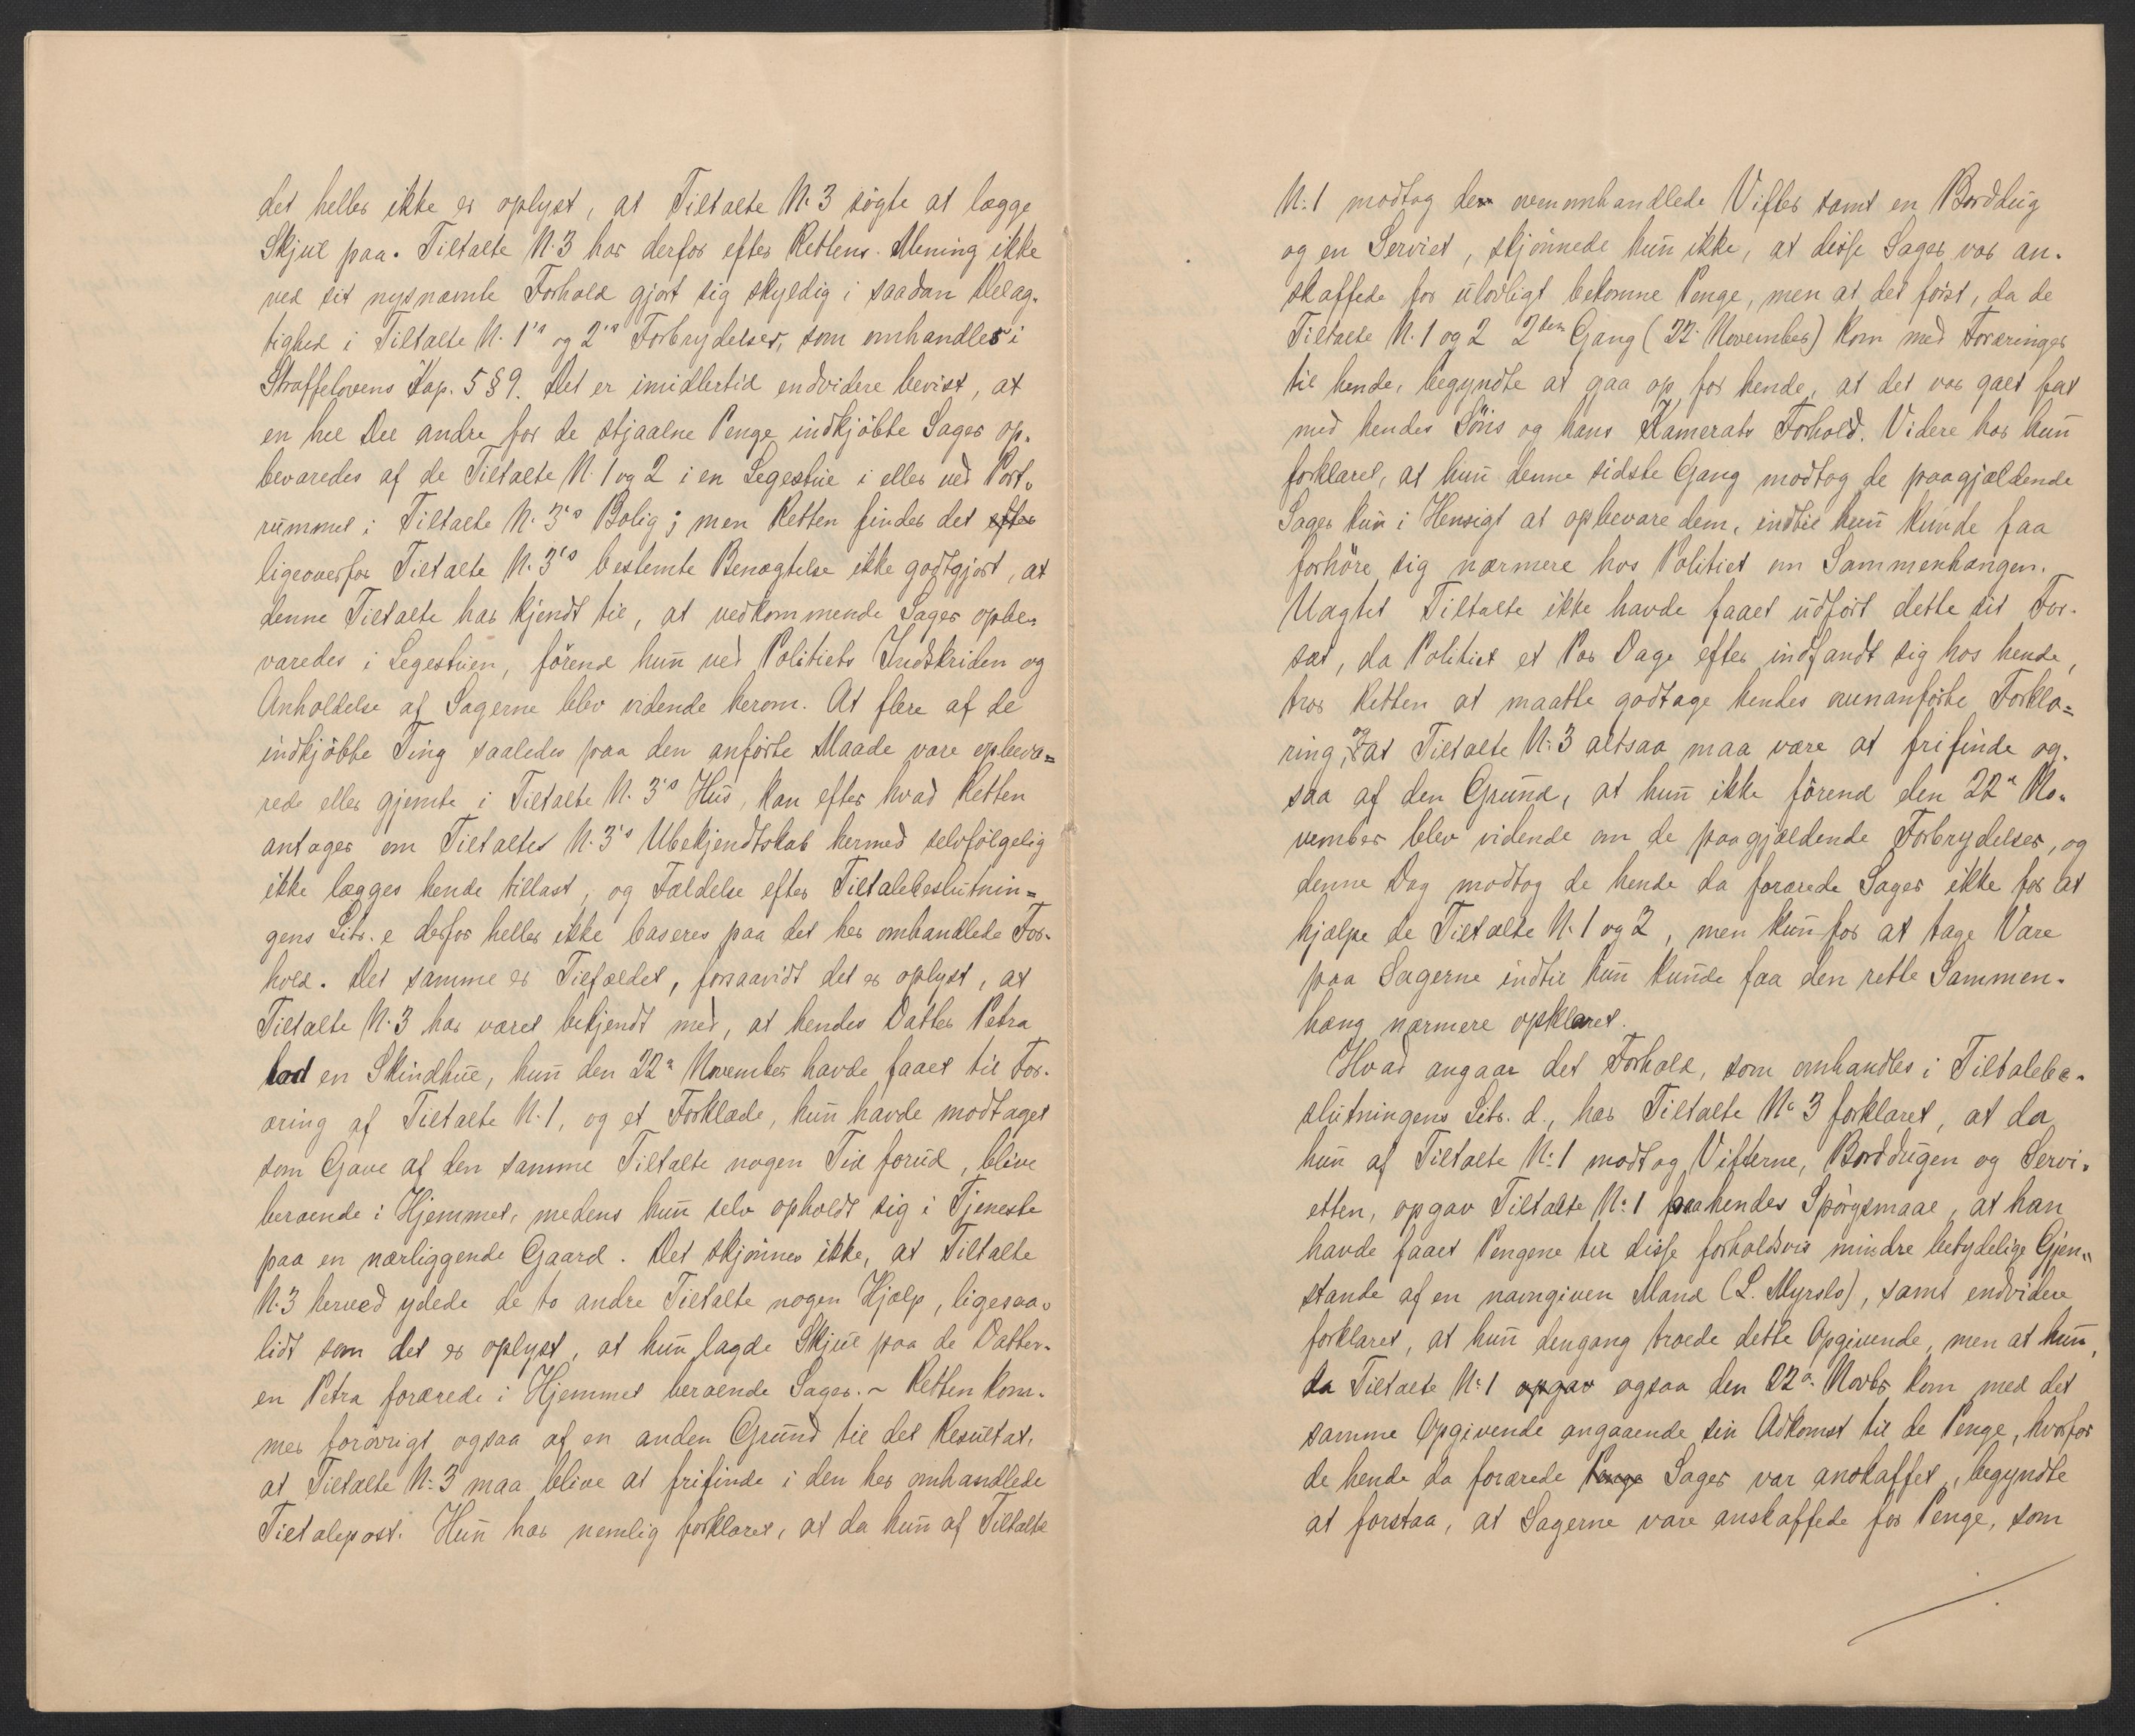 det heller ikke er oplyst, at Tiltalte N. 3 søgte at lægge
Skjul paa. Tiltalte N. 3 har derfor efter Rettens Mening ikke
ved sit nysnævnte Forhold gjort sig skyldig i saadan Delag-
tighed i Tiltalte N. 1's og 2's Forbrydelser, som omhandles i
Straffelovens Kap. 5 § 9. Det er imidlertid endvidere bevist, at
en hel Del andre for de stjaalne Penge indkjöbte Sager op-
bevaredes af de Tiltalte N. 1 og 2 i en Legestue i eller ved Port-
rummet i Tiltalte N. 3's Bolig; men Retten finder det efter
ligeoverfor Tiltalte N. 3's bestemte Benægtelse ikke godtgjort, at
denne Tiltalte har kjendt til, at vedkommende Sager opbe-
varedes i Legestuen, förend hun ved Politiets Indskriden og
Anholdelse af Sagerne blev vidende herom. At flere af de
indkjöbte Ting saaledes paa den anförte Maade vare opbeva=
rede eller gjemte i Tiltalte N. 3's Hus, kan efter hvad Retten
antager om Tiltaltes N. 3's Ubekjendtskab hermed selvfölgelig
ikke lægges hende tillast, og Fældelse efter Tiltalebeslutnin=
gens Litr. e derfor heller ikke baseres paa det her omhandlede For-
hold. Det samme er Tilfældet, forsaavidt det er oplyst, at
Tiltalte N. 3 har været bekjendt med, at hendes Datter Petra
lod en Skindhue, hun den 22a November havde faaet til For-
æring af Tiltalte N. 1, og et Forklæde, hun havde modtaget
som Gave af den samme Tiltalte nogen Tid forud, blive
beroende i Hjemmet, medens hun selv opholdt sig i Tjeneste
paa en nærliggende Gaard. Det skjönnes ikke, at Tiltalte
N. 3 herved ydede de to andre Tiltalte nogen Hjælp, ligesaa-
lidt som det er oplyst, at hun lagde Skjul paa de Datter-
en Petra forærede i Hjemmet beroende Sager. - Retten kom-
mer forövrigt ogsaa af en anden Grund til det Resultat,
at Tiltalte N: 3 maa blive at frifinde i den her omhandlede
Tiltalepost. Hun har nemlig forklaret, at da hun af Tiltalte
N: 1 modtog den ovenomhandlede Vifter samt en Borddug
og en Serviet, skjönnede hun ikke, at disse Sager var an-
skaffede for ulovligt bekomne Penge, men at det först, da de
Tiltalte N. 1 og 2 2den Gang (22. November) kom med Foræringer
til hende, begyndte at gaa op for hende, at det var galt fat
med hendes Söns og hans Kamerats Forhold. Videre har hun
forklaret, at hun denne sidste Gang modtog de paagjældende
Sager kun i Hensigt at opbevare dem, indtil hun kunde faa
forhöre sig nærmere hos Politiet om Sammenhængen.
Uagtet Tiltalte ikke havde faaet udfört dette sit For-
sæt, da Politiet et Par Dage efter indfandt sig hos hende,
tror Retten at maatte godtage hendes ovenanförte Forkla=
ring, og at Tiltalte N: 3 altsaa maa være at frifinde og-
saa af den Grund, at hun ikke förend den 22a No-
vember blev vidende om de paagjældende Forbrydelser, og
denne Dag modtog de hende da forærede Sager ikke for at
hjælpe de Tiltalte N. 1 og 2, men kun for at tage Vare
paa Sagerne indtil hun kunde faa den rette Sammen-
hæng nærmere opklaret.
Hvad angaar det Forhold, som omhandles i Tiltalebe-
slutningens Litr. d., har Tiltalte N: 3 forklaret, at da
hun af Tiltalte N: 1 modtog Vifterne, Borddugen og Servi-
etten, opgav Tiltalte N: 1 paa hendes Spörgsmaal, at han
havde faaet Pengene til disse forholdsvis mindre betydelige Gjen-
stande af en navngiven Mand (L. Myrslo), samt endvidere
forklaret, at hun dengang troede dette Opgivende, men at hun,
da Tiltalte N: 1 opgav ogsaa den 22a Novbr kom med det
samme Opgivende angaaende sin Adkomst til de Penge, hvorfor
de hende da forærede Penge Sager var anskaffet, begyndte
at forstaa, at Sagerne vare anskaffede for Penge, som